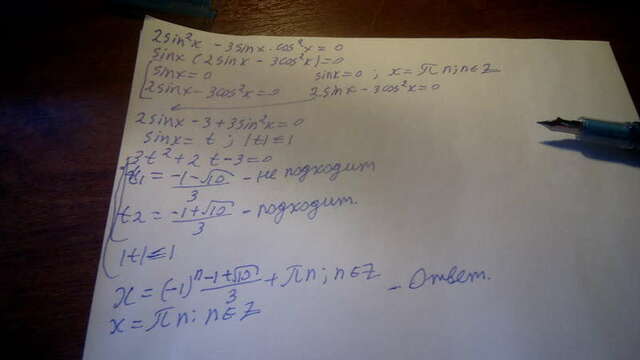 2sin²x - 3sinx·cos²x = 0
sinx (2sinx - 3cos²x) = 0
sinx = 0 sinx = 0 ; x = πn; n∈Z
2sinx - 3cos²x = 0 2sinx - 3cos²x = 0
2sinx - 3 + 3sin²x = 0
sinx = t ; |t| ≤ 1
3t² + 2t - 3 = 0
t1 = (-1-√10)/3 - не подходит
t2 = (-1+√10)/3 - подходит.
|t| ≤ 1
x = (-1)ⁿ (-1+√10)/3 + πn; n∈Z - Ответ.
x = πn; n∈Z